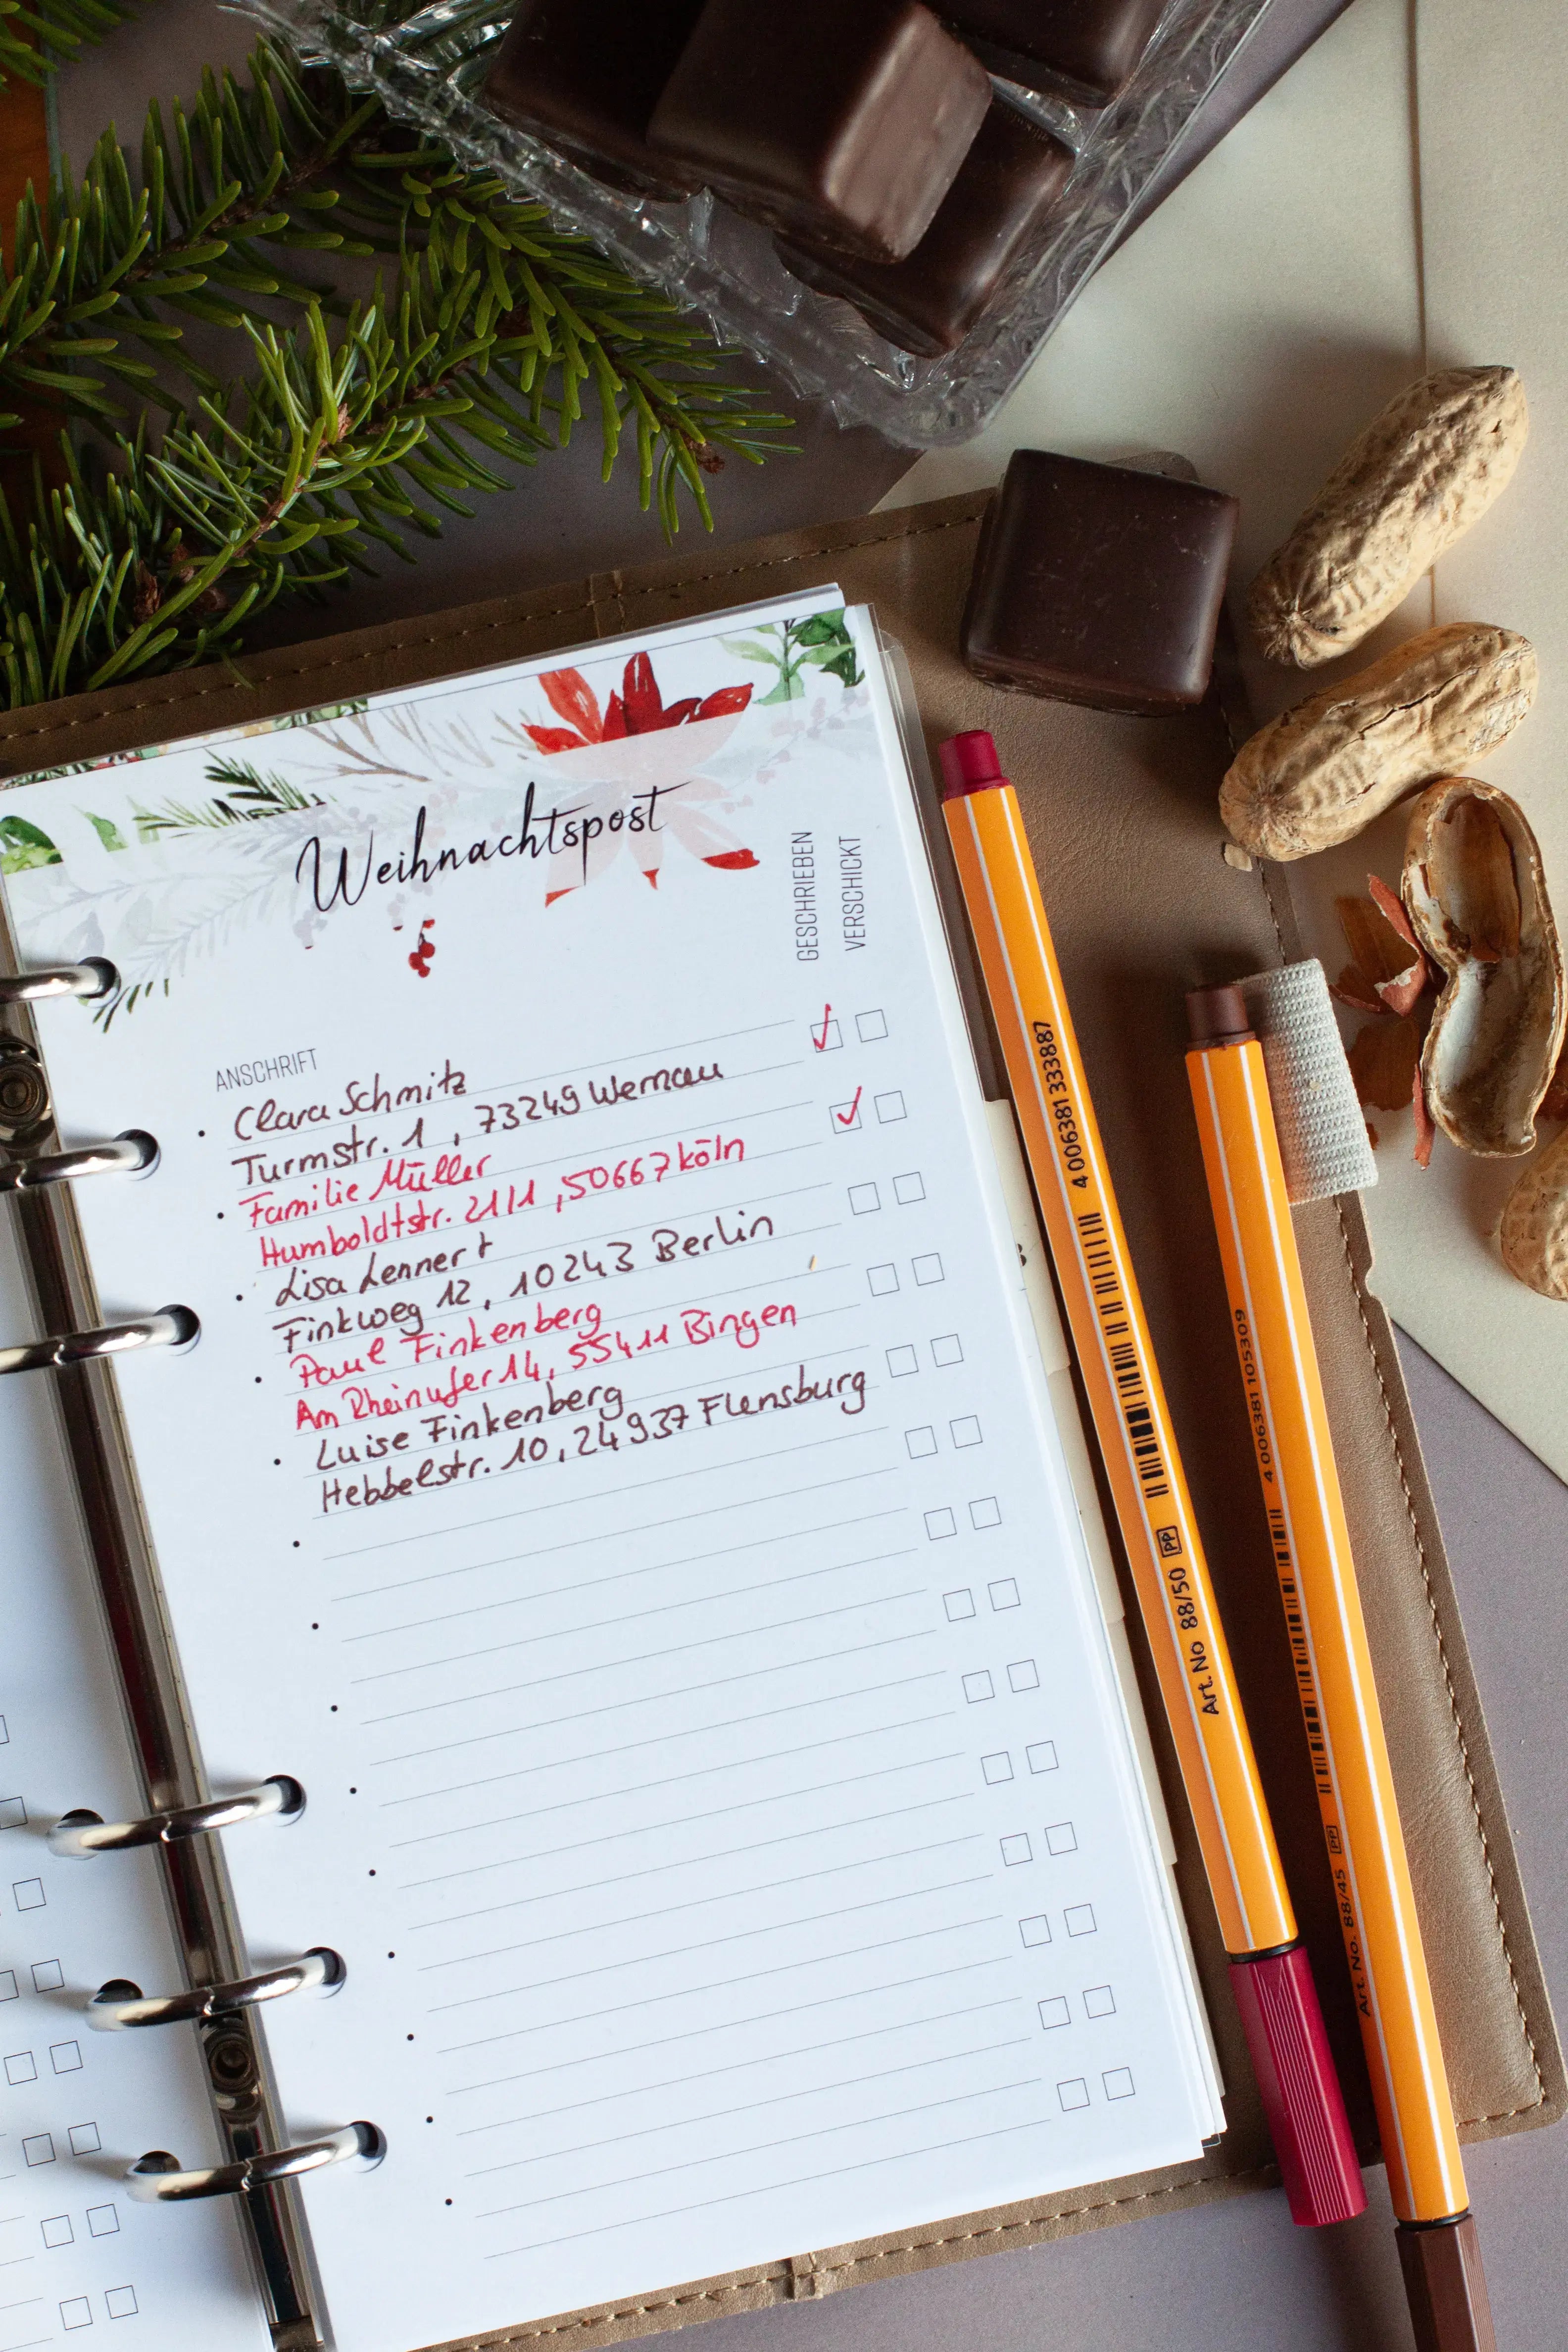 Weihnachtspost
GESCHRIEBEN
VERSCHICKT
ANSCHRIFT
Clara Schmitz
Turmstr. 1, 73249 Wernau
Familie Müller
Humboldtstr. 21/1, 50667 Köln
Lisa Lennert
Finkweg 12, 10243 Berlin
Paul Finkenberg
Am Rheinufer 14, 55411 Bingen
Luise Finkenberg
Hebbelstr. 10, 24937 Flensburg
4 006381 333887
Art. No 88/50 PP
4 006381 105309
Art. No. 88/45 PP